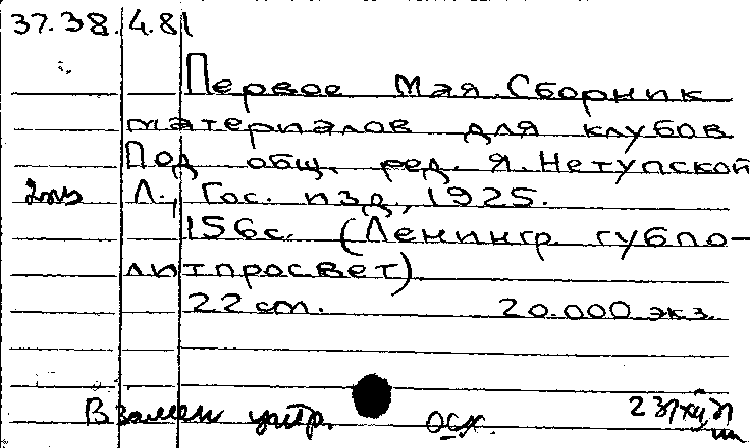 37.38.4.81
Первое Мая. Сборник
материалов для клубов
Под общ. ред. Я. Нетупской
2 экз Л., Гос. изд., 1925.
156 с. (Ленингр. губпо-
литпросвет).
22 см. 20.000 экз.
Взамен утр. осх.